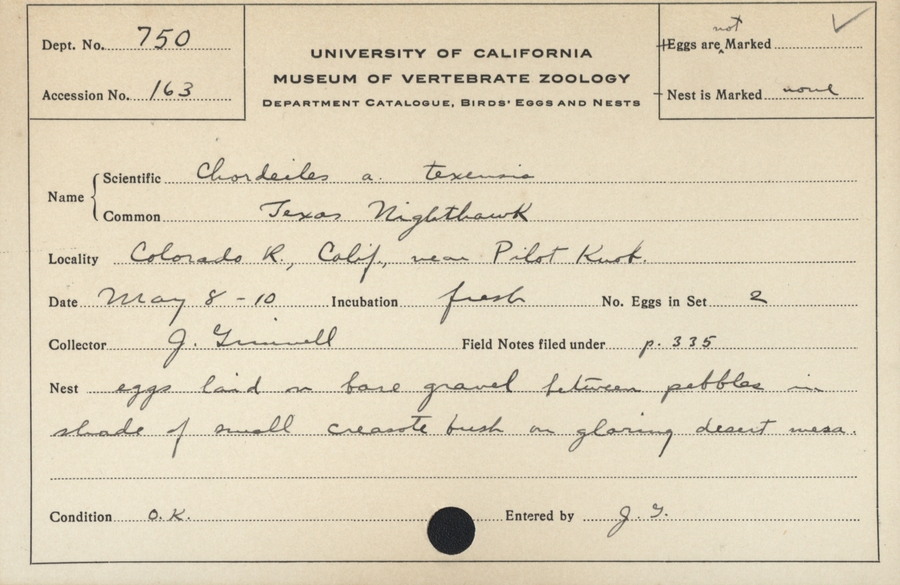 Dept. No. 750
Accession No. 163
UNIVERSITY OF CALIFORNIA
MUSEUM OF VERTEBRATE ZOOLOGY
DEPARTMENT CATALOGUE, BIRDS' EGGS AND NESTS
not
Eggs are Marked
Nest is Marked none
Name
Scientific Chordeiles a. texensis
Common Texas Nighthawk
Locality Colorado R., Calif., near Pilot Knob.
Date May 8-10 Incubation fresh No. Eggs in Set 2
Collector J. Grinnell Field Notes filed under p. 335
Nest eggs laid on bare gravel between pebbles in
shade of small creasote bush on glaring desert mesa.
Condition O.K. Entered by J. G.